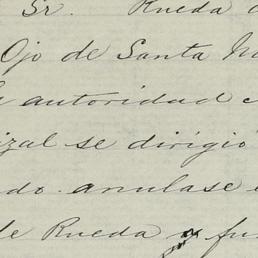 Sr. Rueda
Ojo de Santa
autoridad
se dirigió
anulase
Rueda y